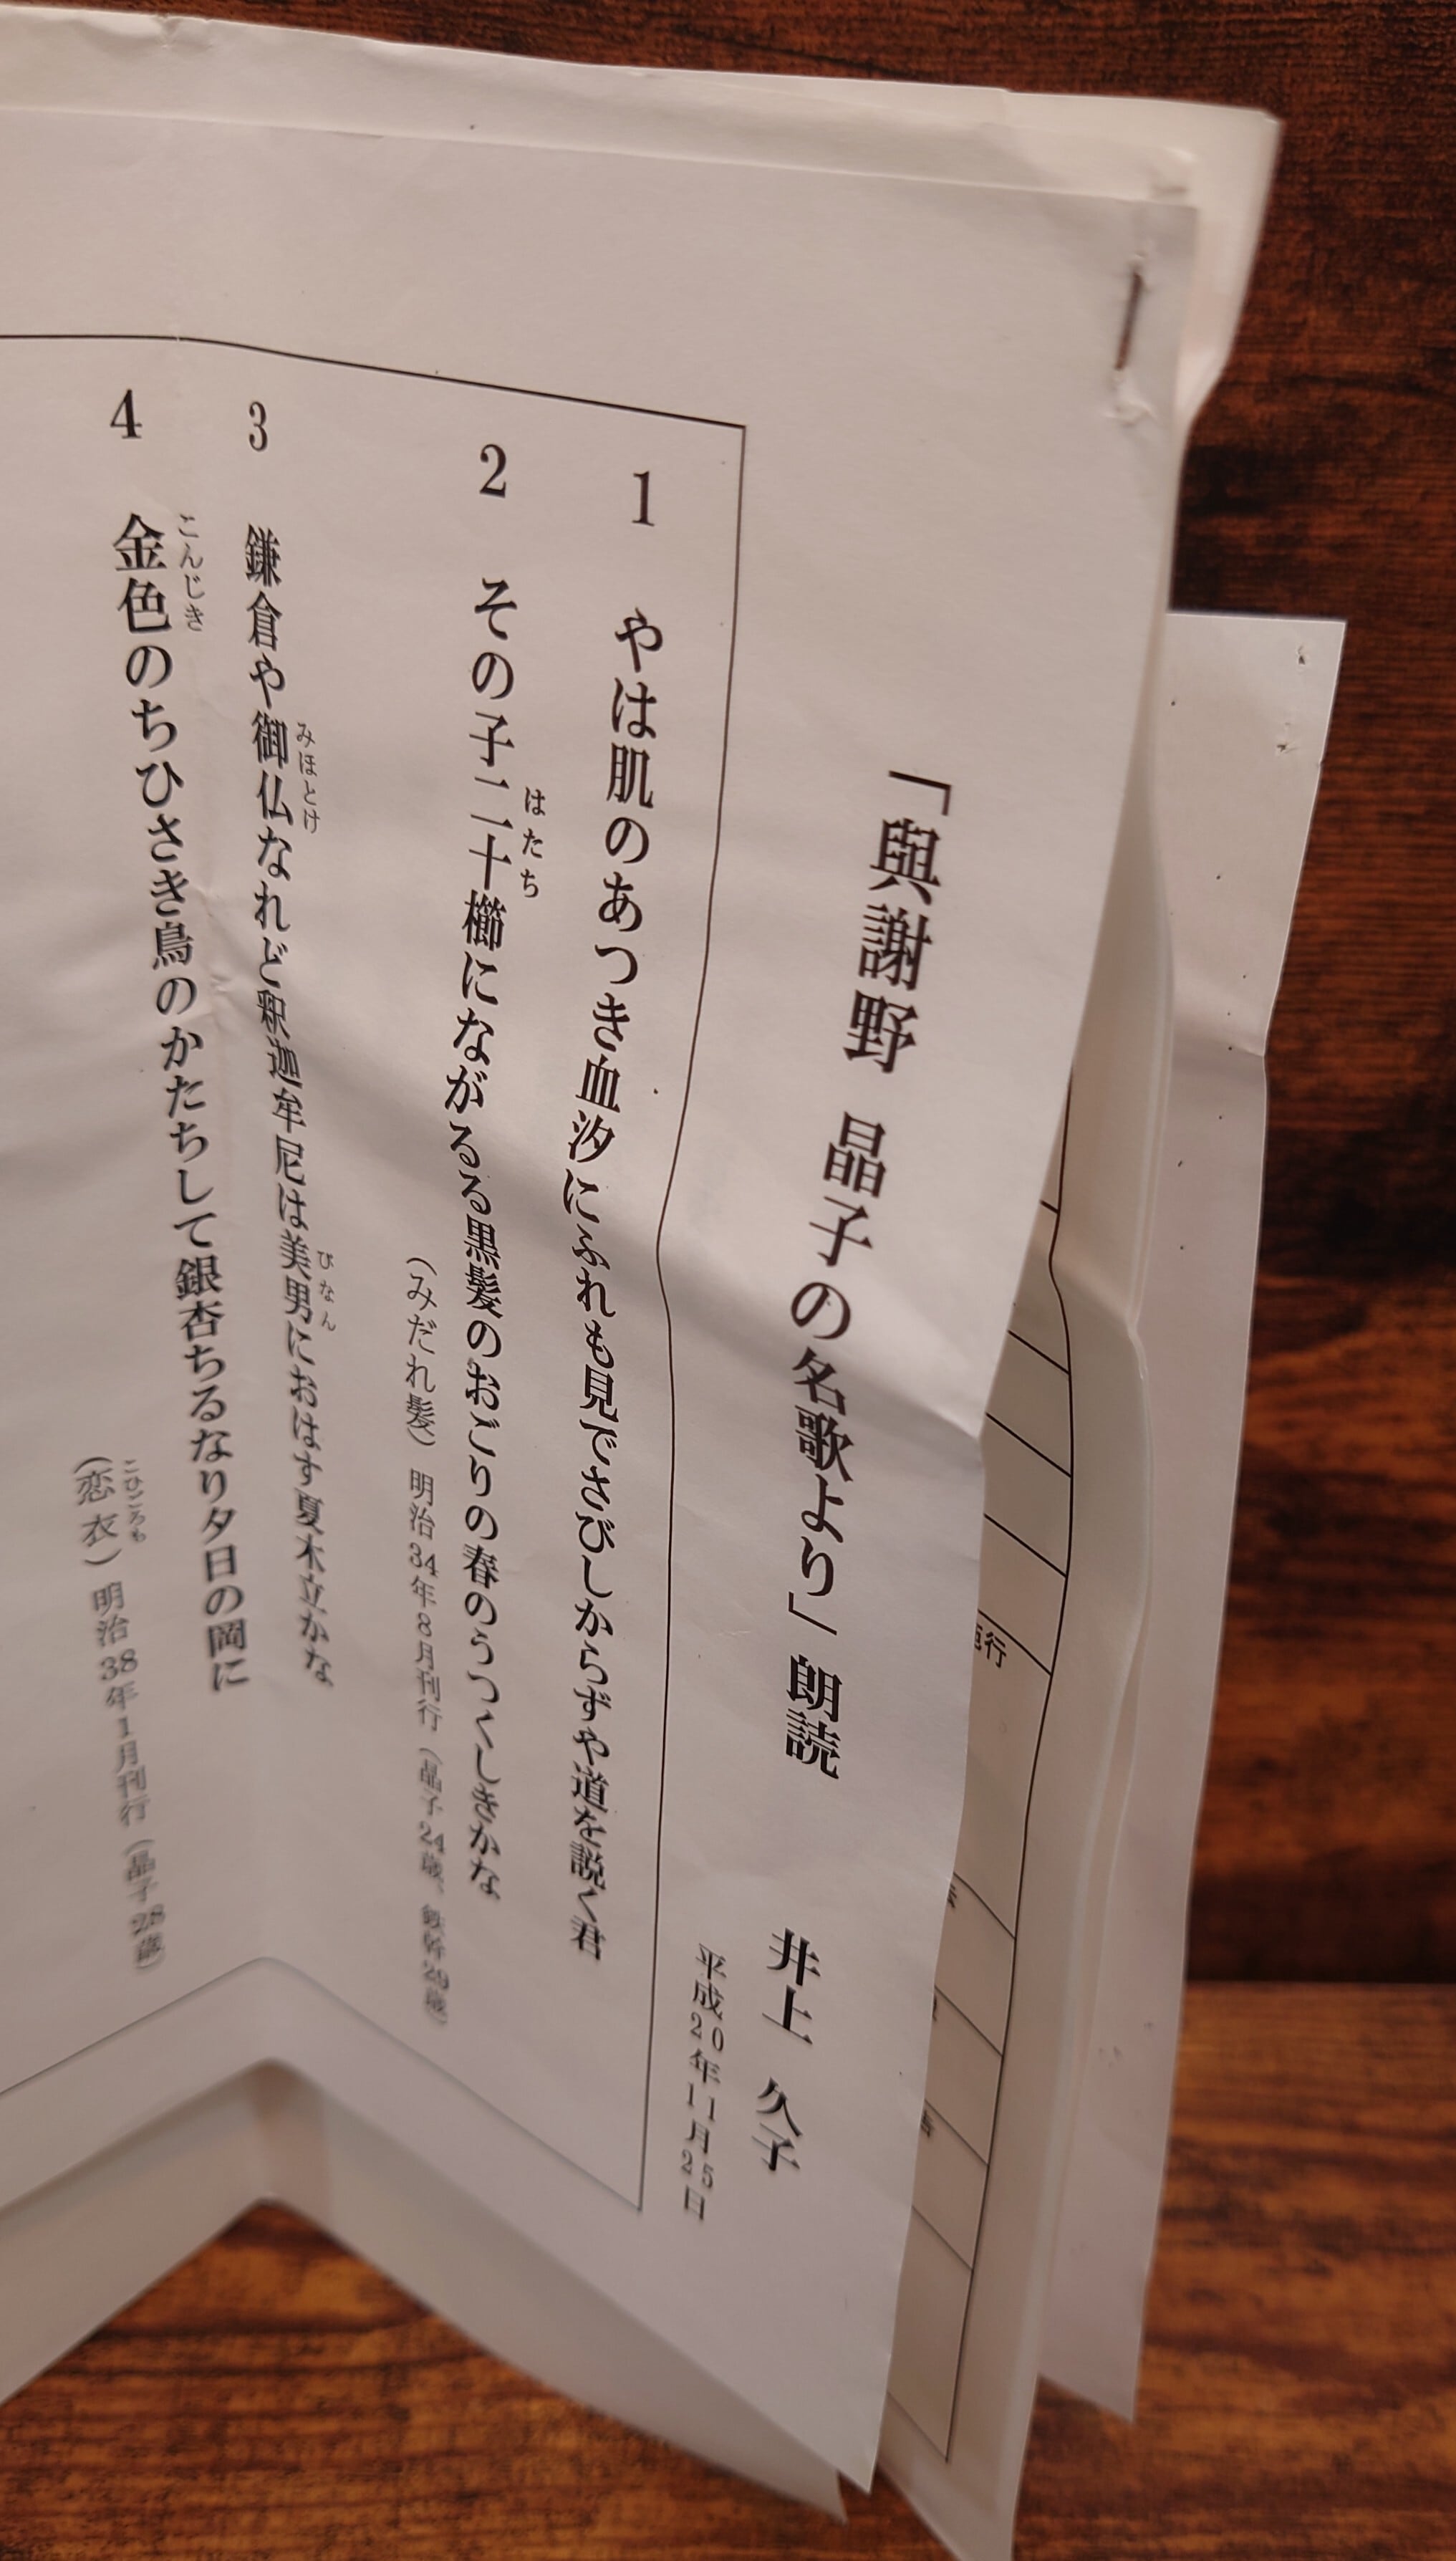 「與謝野 晶子の名歌より」朗読
井上 久子
平成20年11月25日
1 やは肌のあつき血汐にふれも見でさびしからずや道を説く君
はたち
2 その子二十櫛にながるる黒髪のおごりの春のうつくしきかな
(みだれ髪) 明治34年8月刊行 (晶子24歳、鉄幹29歳)
みほとけ びなん
3 鎌倉や御仏なれど釈迦牟尼は美男におはす夏木立かな
こんじき
4 金色のちひさき鳥のかたちして銀杏ちるなり夕日の岡に
こひごろも
(恋衣) 明治38年1月刊行 (晶子28歳)
行